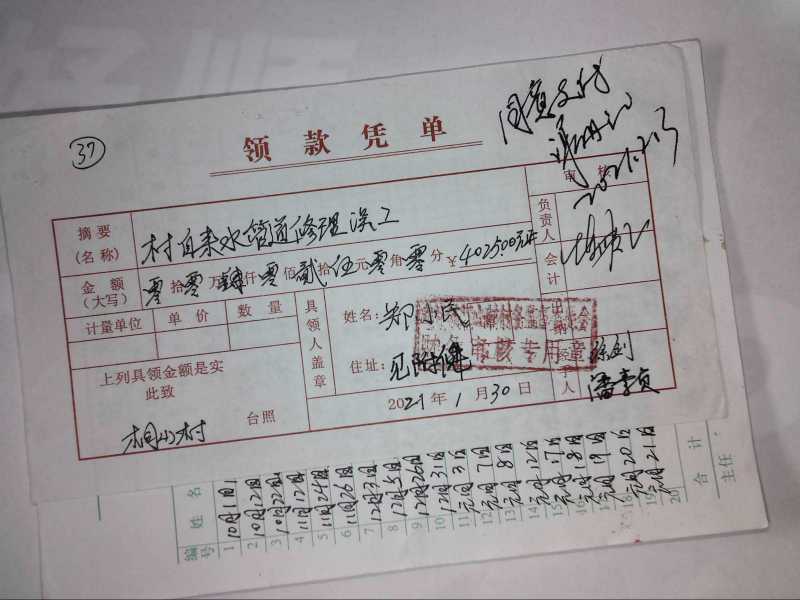 37
领款凭单
同意支付
2021.2.3
审核
摘要
(名称)
村自来水管道修理误工
负责人
金额
(大写)
零拾零万肆仟零佰贰拾伍元零角零分
¥4025.00元
会计
计量单位 单价 数量
具领人盖章
姓名:郑小民
住址:见附件
审核专用章
上列具领金额是实
此致
桐山村
台照
2021年1月30日
徐剑
潘孝贞
编号 姓名
1 10月1日
2 10月12日
3 10月22日
4 11月12日
5 11月24日
6 11月26日
7 12月3日
8 12月5日
9 12月26日
10 12月31日
11 元月3日
12 元月7日
13 元月8日
14 元月12日
15 元月17日
16 元月18日
元月19日
18 元月20日
19 元月21日
20
合计
主任